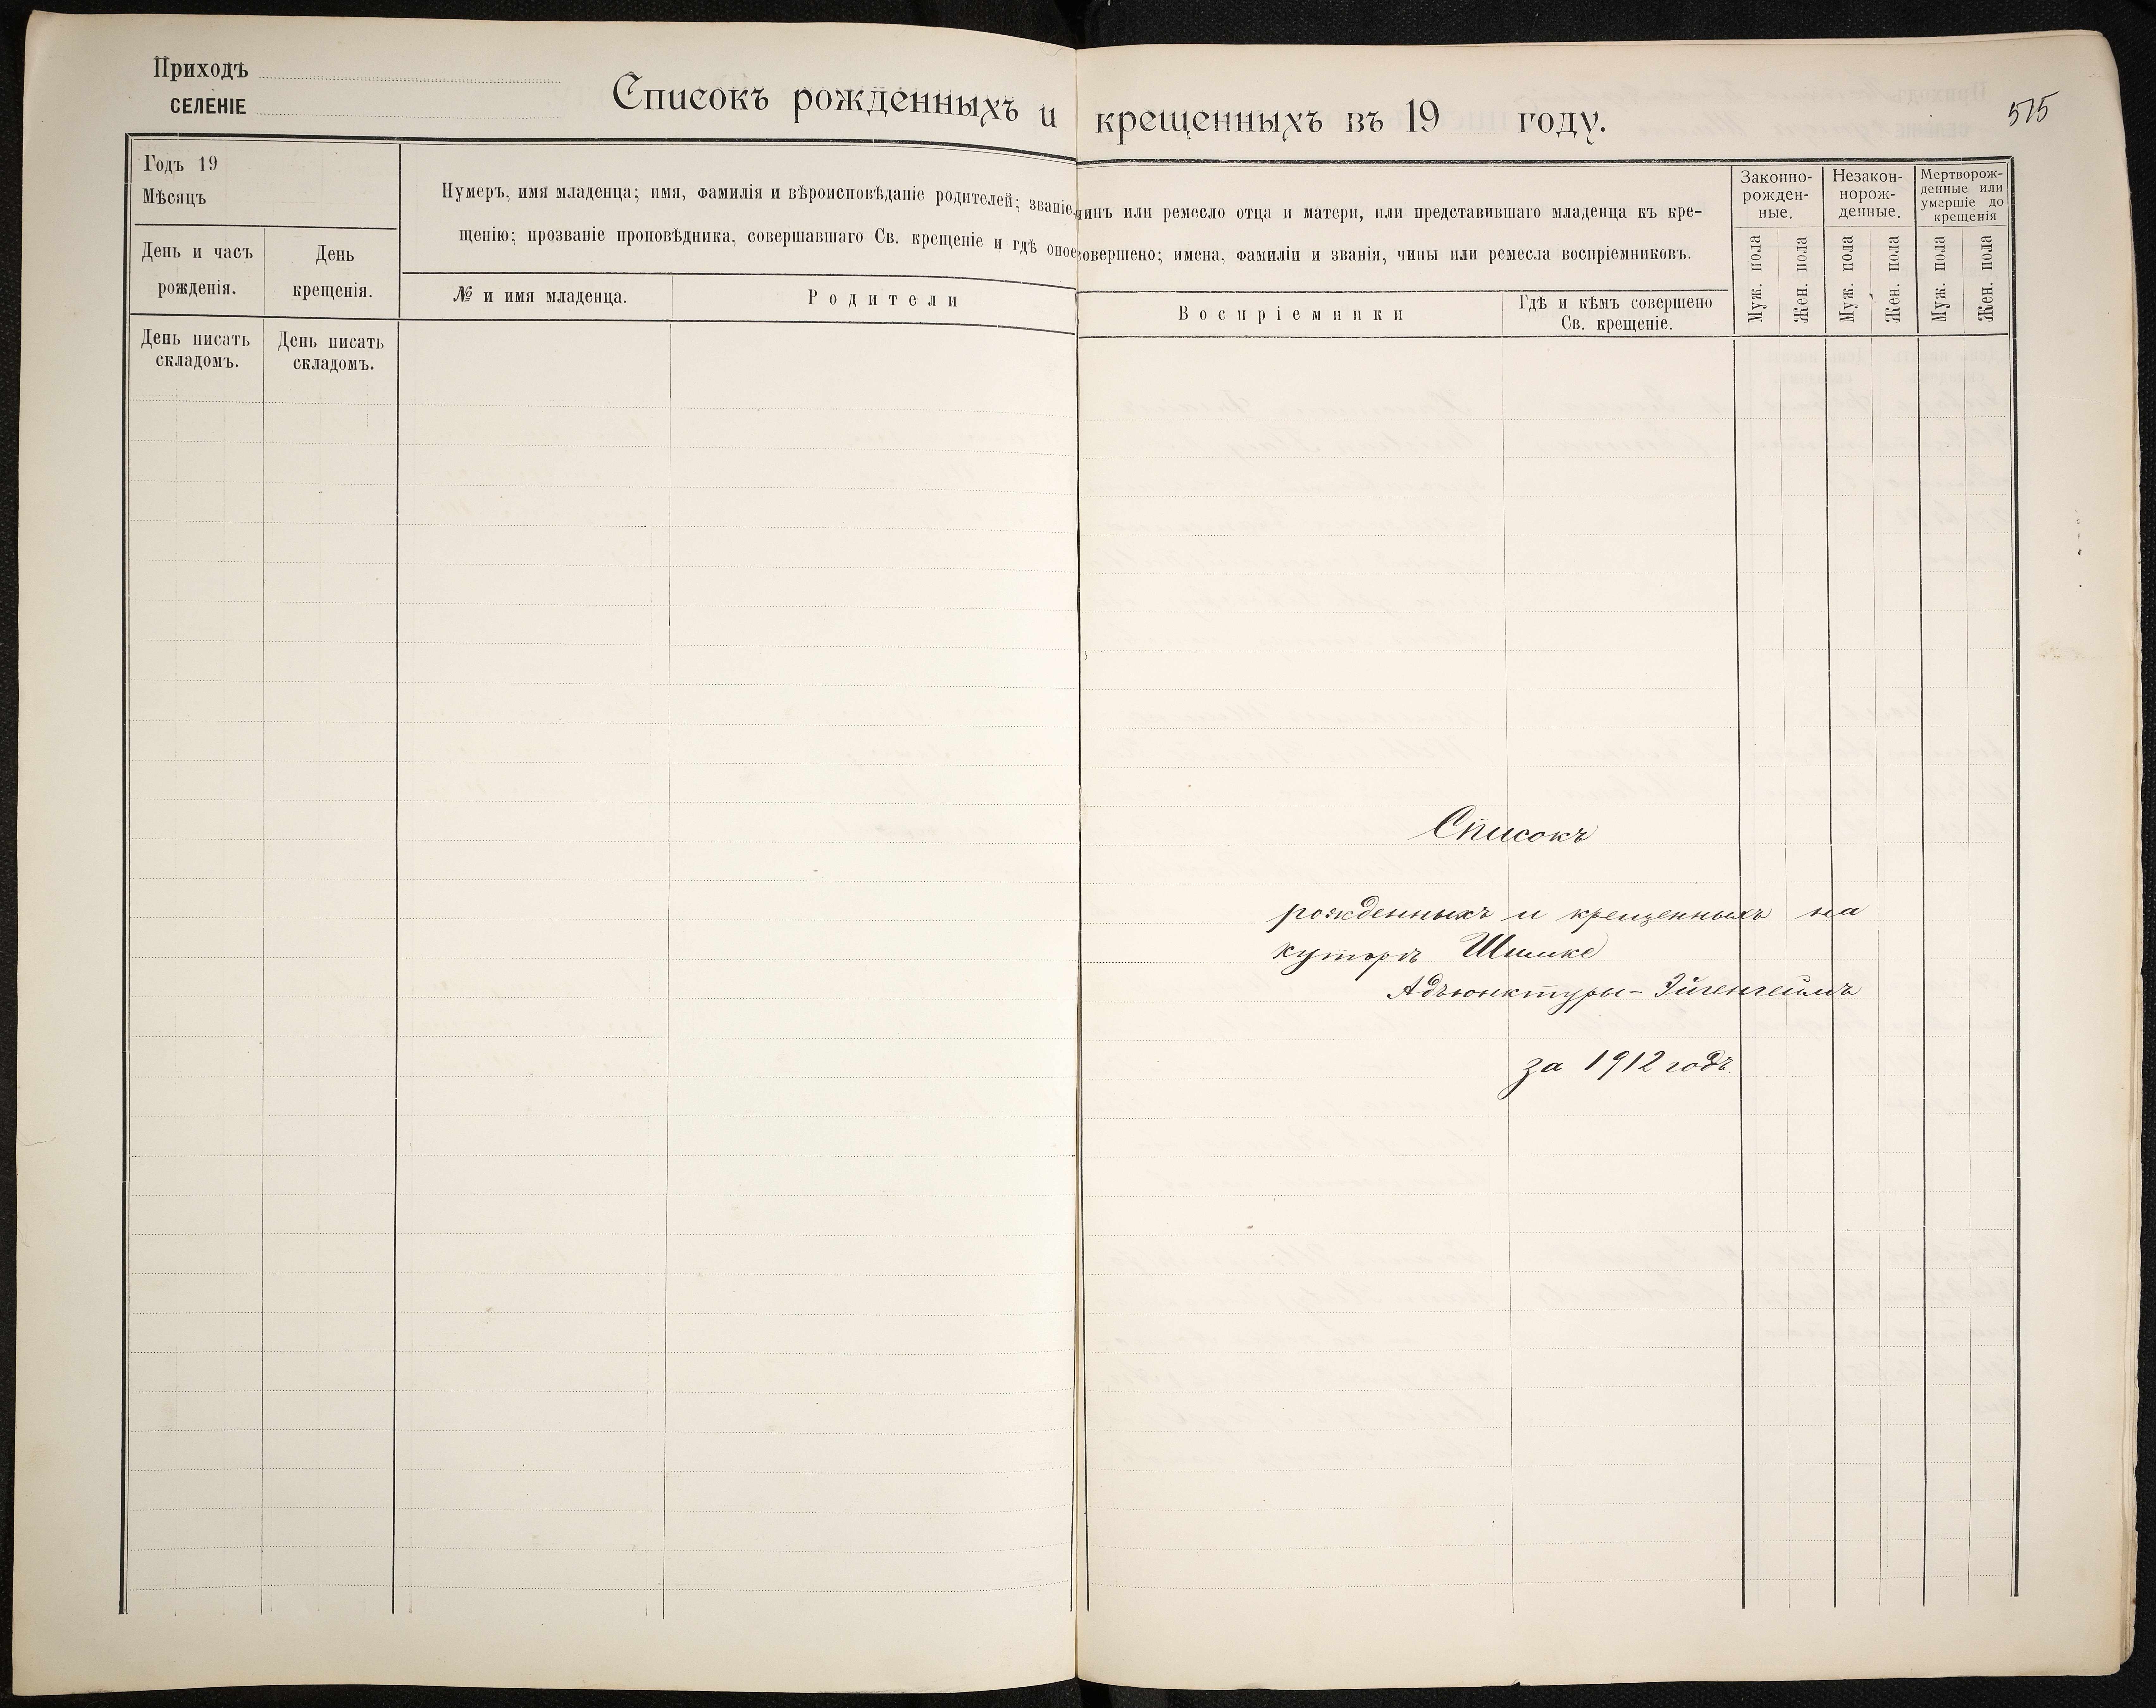 Приходъ
СЕЛЕНІЕ
Списокъ рожденныхъ и крещенныхъ въ 19 году.
575
Годъ 19
Мѣсяцъ
День и часъ рожденія.
День крещенія.
Нумеръ, имя младенца; имя, фамилія и вѣроисповѣданіе родителей; званіе, чинъ или ремесло отца и матери, или представившаго младенца къ кре-
щенію; прозваніе проповѣдника, совершавшаго Св. крещеніе и гдѣ оное совершено; имена, фамиліи и званія, чины или ремесла воспріемниковъ.
№ и имя младенца.
Родители
Воспріемники
Гдѣ и кѣмъ совершено
Св. крещеніе.
Законно-
рожден-
ные.
Незакон-
норож-
денные.
Мертворож-
денные или
умершіе до
крещенія
Муж. пола
Жен. пола
Муж. пола
Жен. пола
Муж. пола
Жен. пола
День писать
складомъ.
День писать
складомъ.
Списокъ
рожденныхъ и крещенныхъ на
хуторѣ Шимке
Адъюнктуры-Эйгенгеймъ
за 1912 годъ.